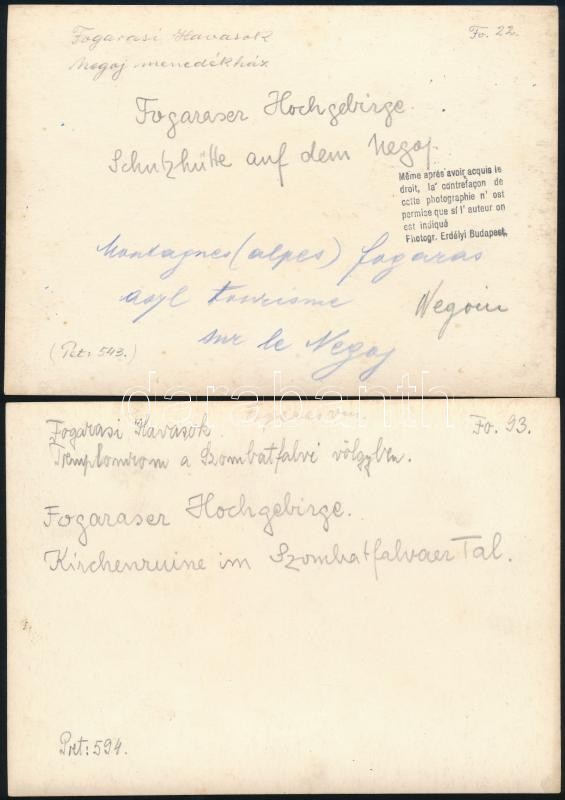 Fogarasi Havasok
Negoj menedékház
Fo. 22.
Fogaraser Hochgebirge.
Schutzhütte auf dem Negoj.
Même après avoir acquis le
droit, la contrefaçon de
cette photographie n' est
permise que si l' auteur en
est indiqué
Photogr. Erdélyi Budapest.
Montagnes (alpes) fogaras
asyl tourisme
sur le Negoj
Negoiu
(Pet: 543.)
darabanth
Fogarasi Havasok
Fo. 93.
Templomrom a Szombatfalvi völgyben.
Fogaraser Hochgebirge.
Kirchenruine im Szombatfalvaer Tal.
Pret: 594.